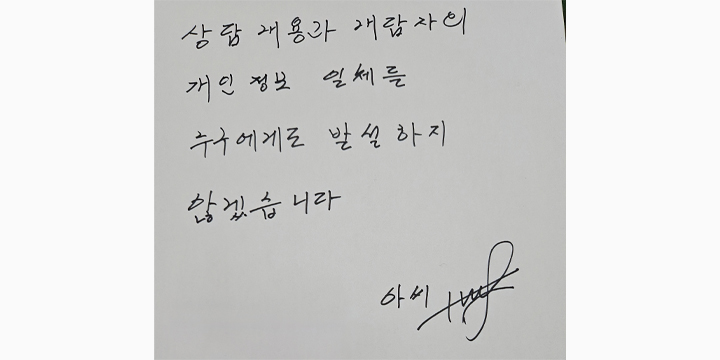 상담 내용과 내담자의
개인정보 일체를
누구에게도 발설하지
않겠습니다
아씨